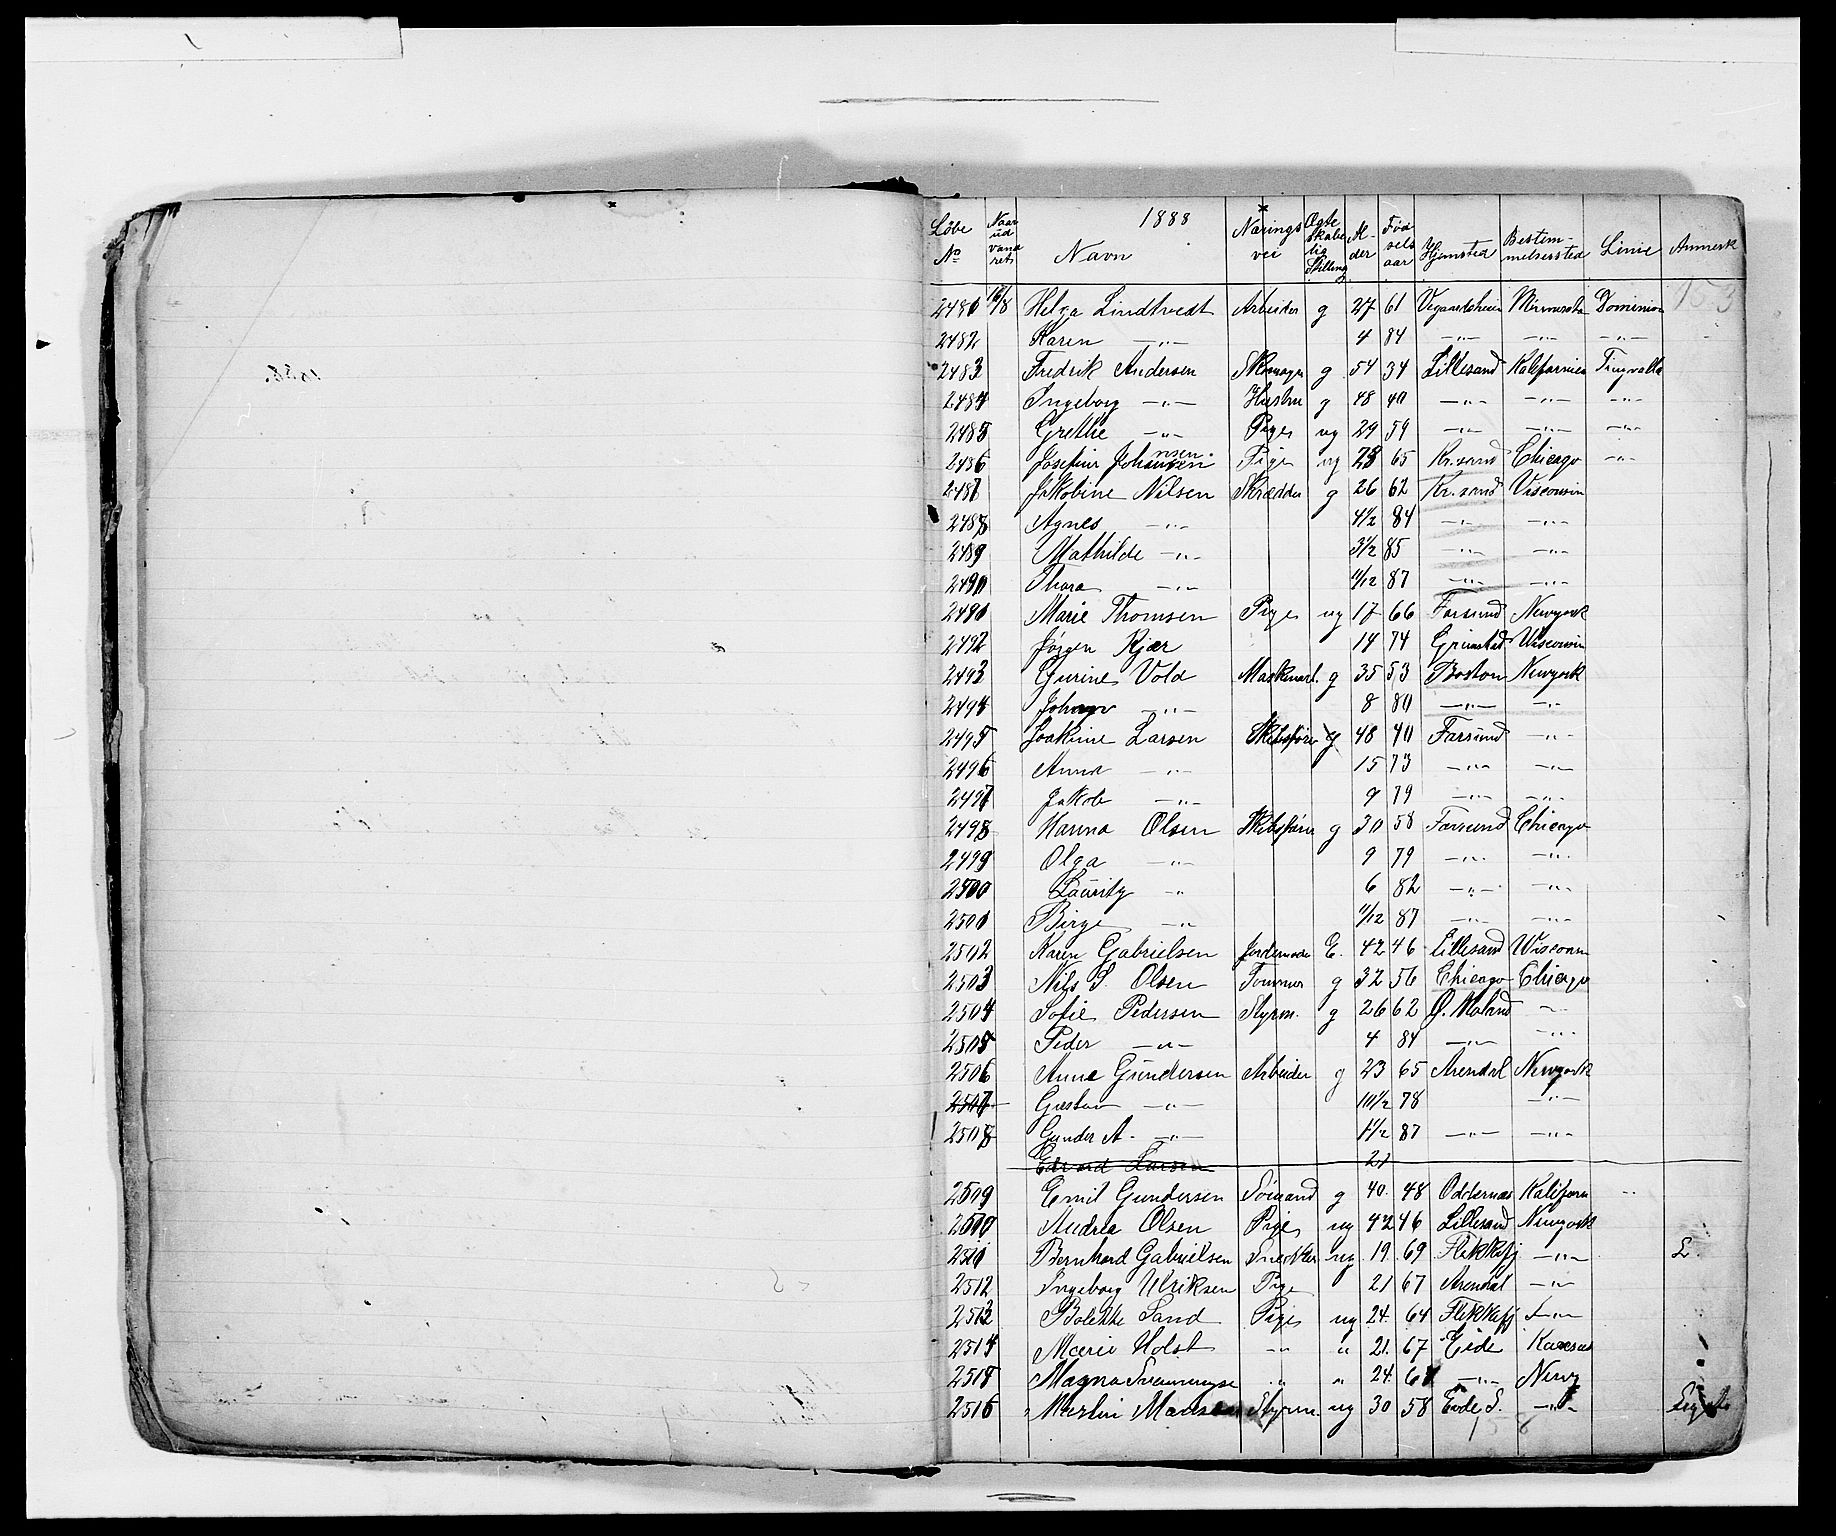 1888
Löbe No Naar ud vand ret Navn Nærings vei Ægte skabe lig Stilling Al- der Fød sels aar Hjemsted Bestem- melsessted Linie Anmerk
153
2481 16/8 Helga Lindtvedt Arbeider g 27 61 Vegaardsheien Minnesota Dominion
2482 Karen -"- 4 84 -"- -"- -"-
2483 Fredrik Andersen Skomager g 54 34 Lillesand Kalifornien Tingvalla
2484 Ingeborg -"- Hustru g 48 40 -"- -"- -"-
2485 Grethe -"- Pige ug 29 59 -"- -"- -"-
2486 Josefine Johannsen Pige ug 23 65 Kr.sand Chicago -"-
2487 Jakobine Nilsen Skrædder g 26 62 Kr.sand Visconsin
2488 Agnes -"- 4½ 84 -"- -"-
2489 Mathilde -"- 3½ 85 -"- -"-
2490 Thora -"- 11/12 87 -"- -"-
2491 Marie Thomsen Pige ug 17 66 Farsund Newyork
2492 Jörgen Kjær 14 74 Grimstad Wisconsin
2493 Gurine Vold g 35 53 Boston Newyork
2494 Johan -"- 8 80 -"- -"-
2495 Joakime Larsen Skibsföre g 48 40 Farsund -"-
2496 Anna -"- 15 73 -"- -"-
2497 Jakob -"- 9 79 -"- -"-
2498 Hanna Olsen Skibsföre g 30 58 Farsund Chicago
2499 Olga -"- 9 79 -"- -"-
2500 Lauritz -"- 6 82 -"- -"-
2501 Birge -"- 11/12 87 -"- -"-
2502 Karen Gabrielsen Jordemoder E. 42 46 Lillesand Wisconsin
2503 Nils S. Olsen Tömmer g 32 56 Chicago Chicago
2504 Sofie Pedersen Styrm. g 26 62 Ø. Moland -"-
2505 Peder -"- 4 84 -"- -"-
2506 Anna Gundersen Arbeider g 23 65 Arendal Newyork
2507 Gustav -"- 10½ 78 -"-
2508 Gunder A. -"- 1½ 87 -"- -"-
Edvard Larsen 21
2509 Emil Gundersen Sömand g 40. 48 Oddernæs Kaliforn -"-
2510 Andrea Olsen Pige ug 42 46 Lillesand Newyork
2511 Bernhard Gabrielsen Snedker ug 19. 69 Flekkefj -"- L.
2512 Ingeborg Ulriksen Pige 21 67 Arendal -"-
2513 Bolette Sand Pige ug 24. 64 Flekkefj -"-
2514 Marie Holst -"- " 21. 67 Eide Kansas
2515 Magna " " 24. -"- Newy
2516 Martin Styrm. ug 30 58 Eide S. -"-